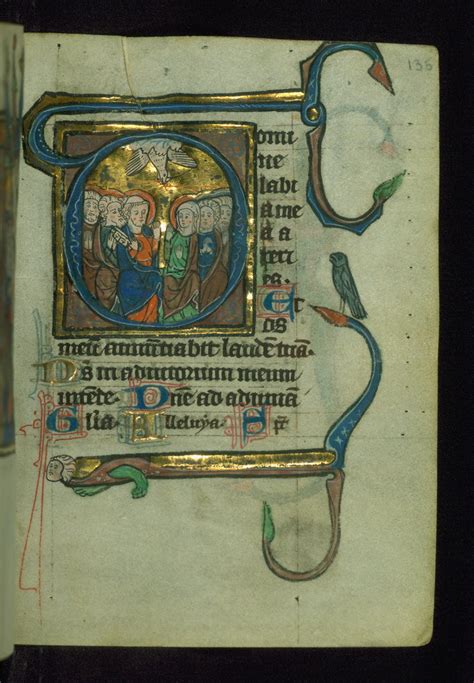 135
Domi
ne
labi
a me
a a
peri
es.
Et
os
meū anūtiabit laudem tuam.
Ds in adiutorium meum
intende. Dne ad adiuuan
Glia. Alleluya.